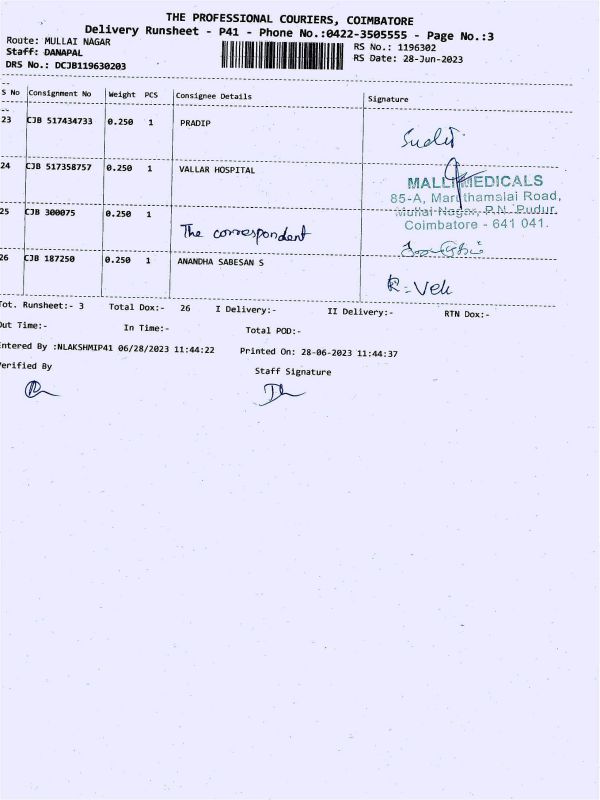 THE PROFESSIONAL COURIERS, COIMBATORE
Delivery Runsheet - P41 - Phone No.:0422-3505555 - Page No.:3
Route: MULLAI NAGAR
RS No.: 1196302
Staff: DANAPAL
RS Date: 28-Jun-2023
DRS No.: DCJB119630203
S No Consignment No Weight PCS Consignee Details Signature
23 CJB 517434733 0.250 1 PRADIP
24 CJB 517358757 0.250 1 VALLAR HOSPITAL
MALLI MEDICALS
85-A, Maruthamalai Road,
25 CJB 300075 0.250 1
Mullai Nagar, P.N. Pudur,
Coimbatore - 641 041.
The correspondent
26 CJB 187250 0.250 1 ANANDHA SABESAN S
Tot. Runsheet:- 3 Total Dox:- 26 I Delivery:- II Delivery:- RTN Dox:-
Out Time:- In Time:- Total POD:-
Entered By :NLAKSHMIP41 06/28/2023 11:44:22 Printed On: 28-06-2023 11:44:37
Verified By Staff Signature